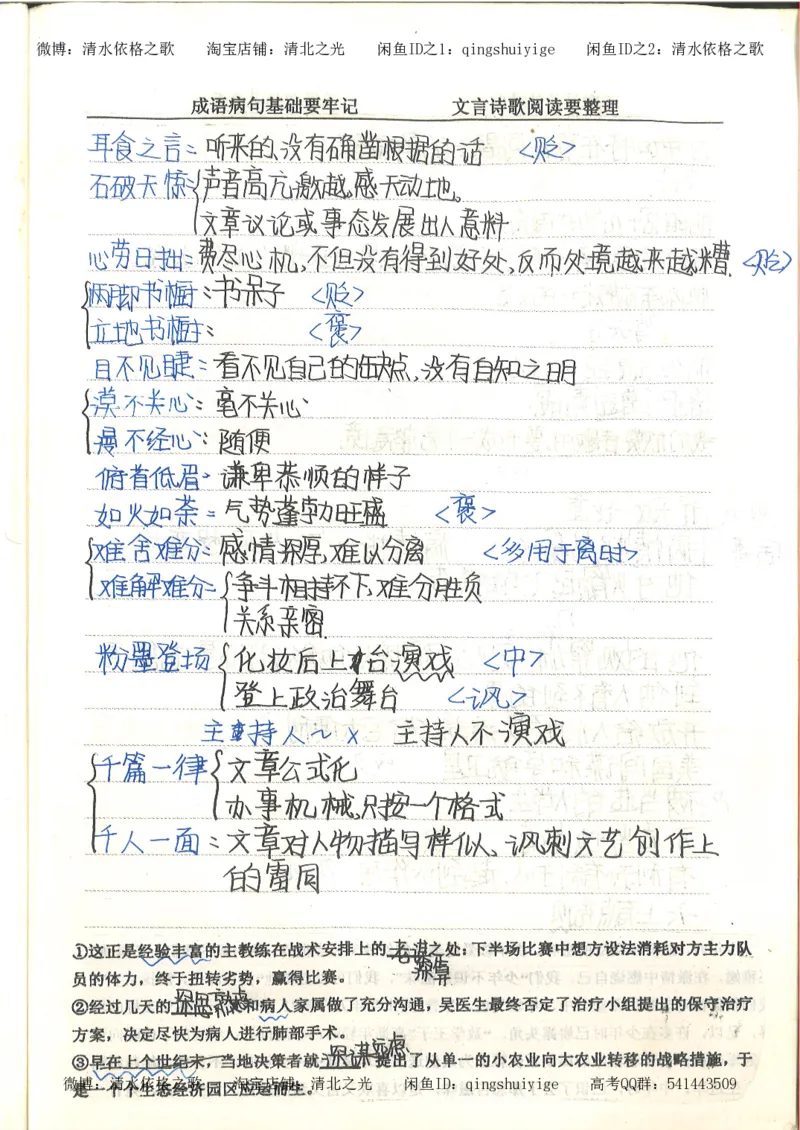 微博：清水依格之歌 淘宝店铺：清北之光 闲鱼ID之1：qingshuiyige 闲鱼ID之2：清水依格之歌
成语病句基础要牢记 文言诗歌阅读要整理
耳食之言：听来的、没有确凿根据的话 <贬>
石破天惊：声音高亢激越，感天动地。
文章议论或事态发展出人意料
心劳日拙：费尽心机，不但没有得到好处，反而处境越来越糟. <贬>
两脚书橱：书呆子 <贬>
立地书橱： <褒>
目不见睫：看不见自己的缺点，没有自知之明
漠不关心：毫不关心
漫不经心：随便
俯首低眉：谦卑恭顺的样子
如火如荼：气势蓬勃旺盛 <褒>
难舍难分：感情深厚，难以分离 <多用于离时>
难解难分：争斗相持不下，难分胜负
关系亲密.
粉墨登场 化妆后上台演戏 <中>
登上政治舞台 <讽>
主持人～× 主持人不演戏
千篇一律 文章公式化
办事机械，只按一个格式
千人一面：文章对人物描写样似、讽刺文艺创作上
的雷同
①这正是经验丰富的主教练在战术安排上的老道之处：下半场比赛中想方设法消耗对方主力队
员的体力，终于扭转劣势，赢得比赛。
②经过几天的 和病人家属做了充分沟通，吴医生最终否定了治疗小组提出的保守治疗
方案，决定尽快为病人进行肺部手术。
深谋远虑
③早在上个世纪末，当地决策者就 提出了从单一的小农业向大农业转移的战略措施，于
是一个个生态经济园区应运而生。
微博：清水依格之歌 淘宝店铺：清北之光 闲鱼ID：qingshuiyige 高考QQ群：541443509